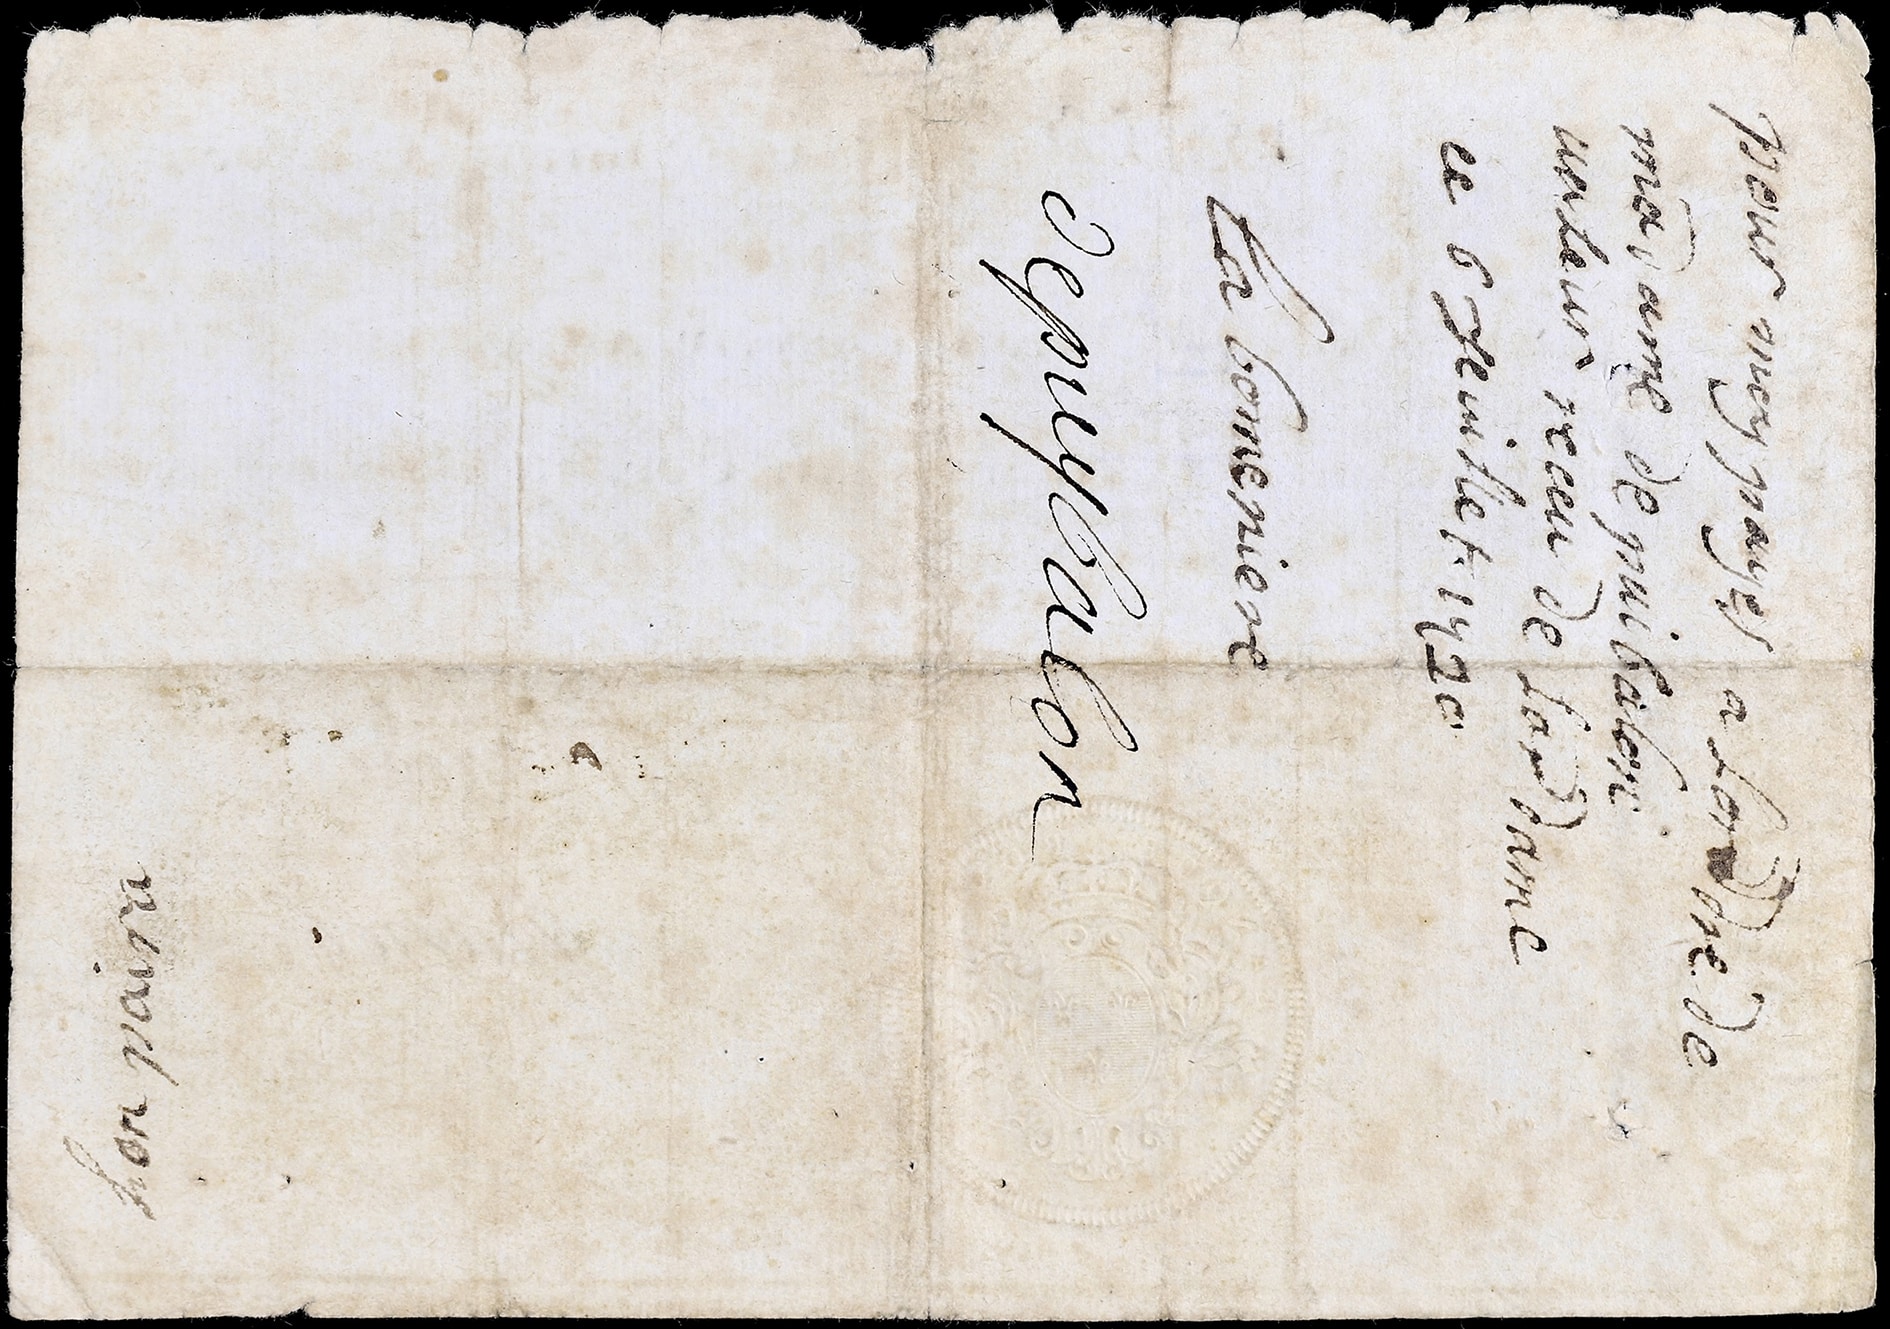 pour moy payes a Lordre de
madame de puibalon
valeur receu de Laddame
ce 6 Jeuillet 1720
La boneniere
depuybalon
bonpain